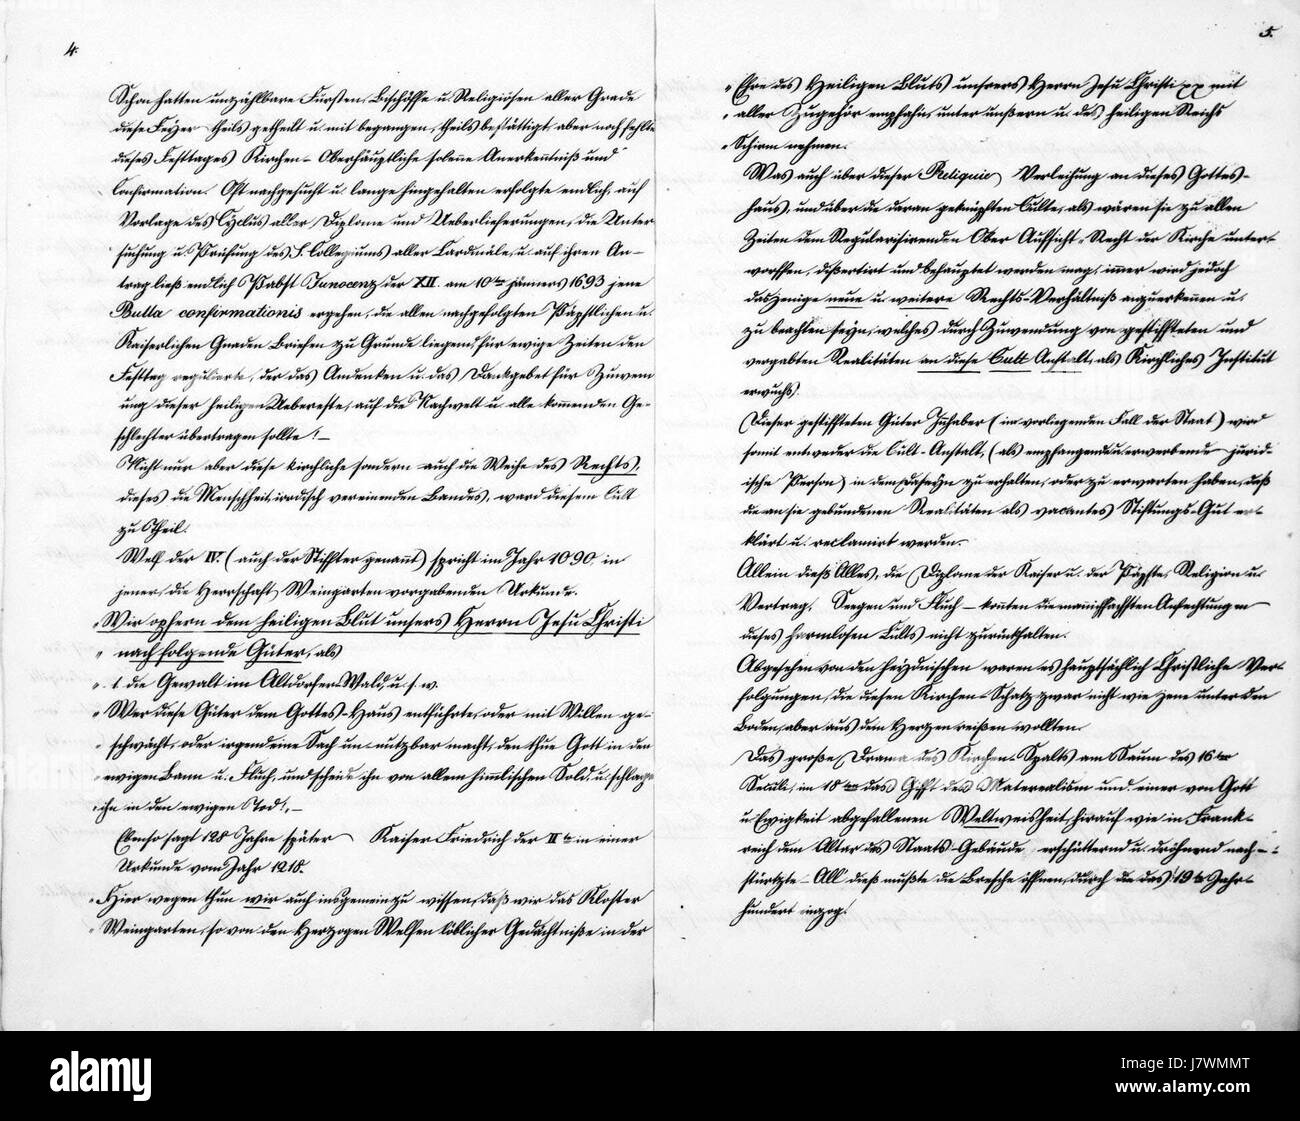 4.
Schon hatten unzählbare Fürsten, Bischöffe u. Religiösen aller Grade
diese Feyer theils getheilt u. mit begangen, theils bestättigt, aber noch fehlte
dieses Festtages Kirchen-Oberhäuptliche solene Anerkentniß und
Confirmation. Oft nachgesucht u. lange hingehalten erfolgte endlich, auf
Vorlage des Cyclus aller Diplome und Ueberlieferungen, die Unter
suchung u. Prüfung des S. Collegiums aller Cardinäle, u. auf ihren An-
trag ließ endlich Pabst Innocenz der XII. am 10ten jänners 1693 jene
Bulla confirmationis ergehen, die allen nachgefolgten Päpstlichen u.
Kaiserlichen Gnaden Briefen zu Grunde liegend, für ewige Zeiten den
Festtag regulierte, der das Andenken u. das Dankgebet für Zuwend
ung dieser heiligen Uebereste, auf die Nachwelt u. alle kommenden Ge-
schlechter übertragen sollte! –
Nicht nur aber diese kirchliche sondern auch die Weihe des Rechts,
dieses die Menschheit irrdisch vereinenden Bandes, ward diesem Cult
zu Theil.
Welf der IV. (auch der Stifter genannt) spricht im Jahr 1090. in
jener, die Herrschaft Weingarten vorgabenden Urkunde.
„Wir opfern dem heiligen Blut unsers Herrn Jesu Christi
„ nachfolgende Güter, als
„ 1. die Gewalt im Altdorfer Wald, u. s. w.
„ Wer diese Güter dem Gottes-Haus entführte, oder mit Willen ge-
„ schwächt, oder irgend eine Sach un-nutzbar macht, den thue Gott in den
„ ewigen Bann u. Fluch, und scheide ihn von allem himmlischen Sold, u. schlage
„ ihn in den ewigen Tod!. –
Ebenso sagt 128 Jahre später Kaiser Friedrich der IIte in einer
Urkunde vom Jahr 1218.
„ Hier wegen thun wir auch insgemein zu wissen, daß wir das Kloster
„ Weingarten, so von den Herzogen Welfen löblicher Gedächtniße in der
5.
„ Ehre des Heiligen Bluts unsrers Herrn Jesu Christi xx mit
„ aller Zugehör empfahn, unter unßern u. des heiligen Reichs
„ Schirm nehmen.
Was auch über dieser Reliquie Verleihung an dieses Gottes-
haus, und über die daran geknüpften Culte, als wären sie zu allen
Zeiten dem Regularisirenden Ober Aufsicht-Recht der Kirche unter-
worffen, dißertirt und behauptet werden mag, immer wird jedoch
dasjenige neue u. weitere Rechts-Verhältniß anzuerkennen u.
zu beachten seyn, welches durch Zuwendung von gestiffteten und
vergabten Realitäten an diese Cult Anstalt, als Kirchliches Institut
erwuchs.
Dieser gestiffteten Güter Inhaber (im vorliegenden Fall der Staat) wird
somit entweder die Cult-Anstalt, (als empfangende u. erwerbende jurid-
ische Person) in dem Daseyn zu erhalten, oder zu erwarten haben, daß
die an sie gebundenen Realitäten als vacantes Stiftungs-Gut er-
klärt u. reclamirt werden.
Allein dieß Alles, die Diplome der Kaiser u. der Päpste, Religion u.
Vertrag, Seegen und Fluch – konten die manichfachsten Anfechtungen
dieses harmlosen Cults nicht zurückhalten.
Abgesehen von den heydnischen waren es hauptsächlich Christliche Ver-
folgungen, die diesen Kirchen-Schatz zwar nicht wie jene unter den
Boden, aber aus den Herzen reißen wollten.
Das große Drama des Kirchen-Spalts am Saum des 16ten
Seculi, in 18ten das Gift des Materealism und einer von Gott
u. Ewigkeit abgefallenen Weltweisheit, hierauf wie in Frank-
reich dem Altar des Staats-Gebäude erschütternd u. dröhnend nach-
stürtzte – All dieß mußte die Bresche öffnen, durch die das 19te Jahr-
hundert einzog!
alamy
Image ID: J7WMMT
www.alamy.com